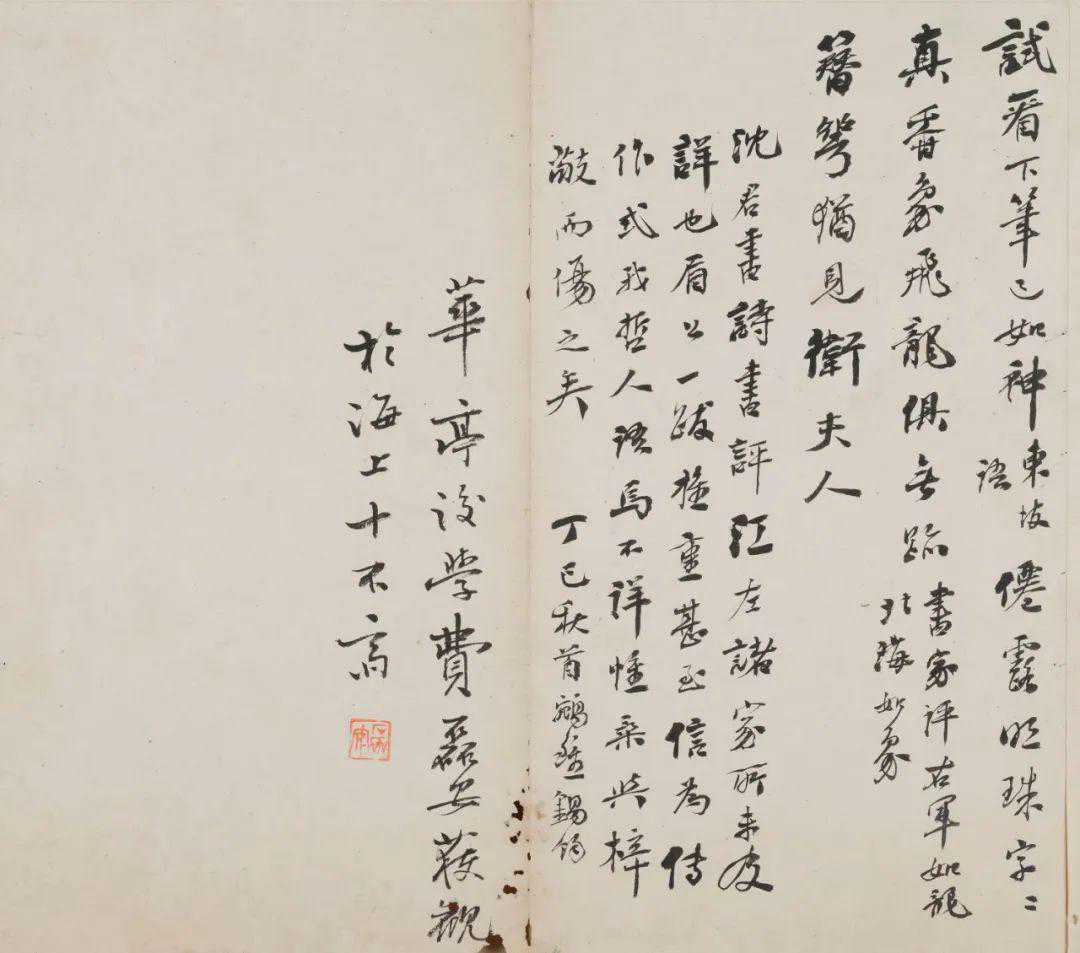 試看下筆已如神東坡語僊露明珠字〻
真香象飛龍俱無跡書家評右軍如龍北海如象
簪猶見衛夫人
沈君書詩書評江左諸家所未及
詳也眉公一跋推重甚至信為傳
作式我哲人語焉不詳惟桑與梓
而傷之矣 丁巳秋首鵷雛錫鈞
華亭後學費觀
於海上十不